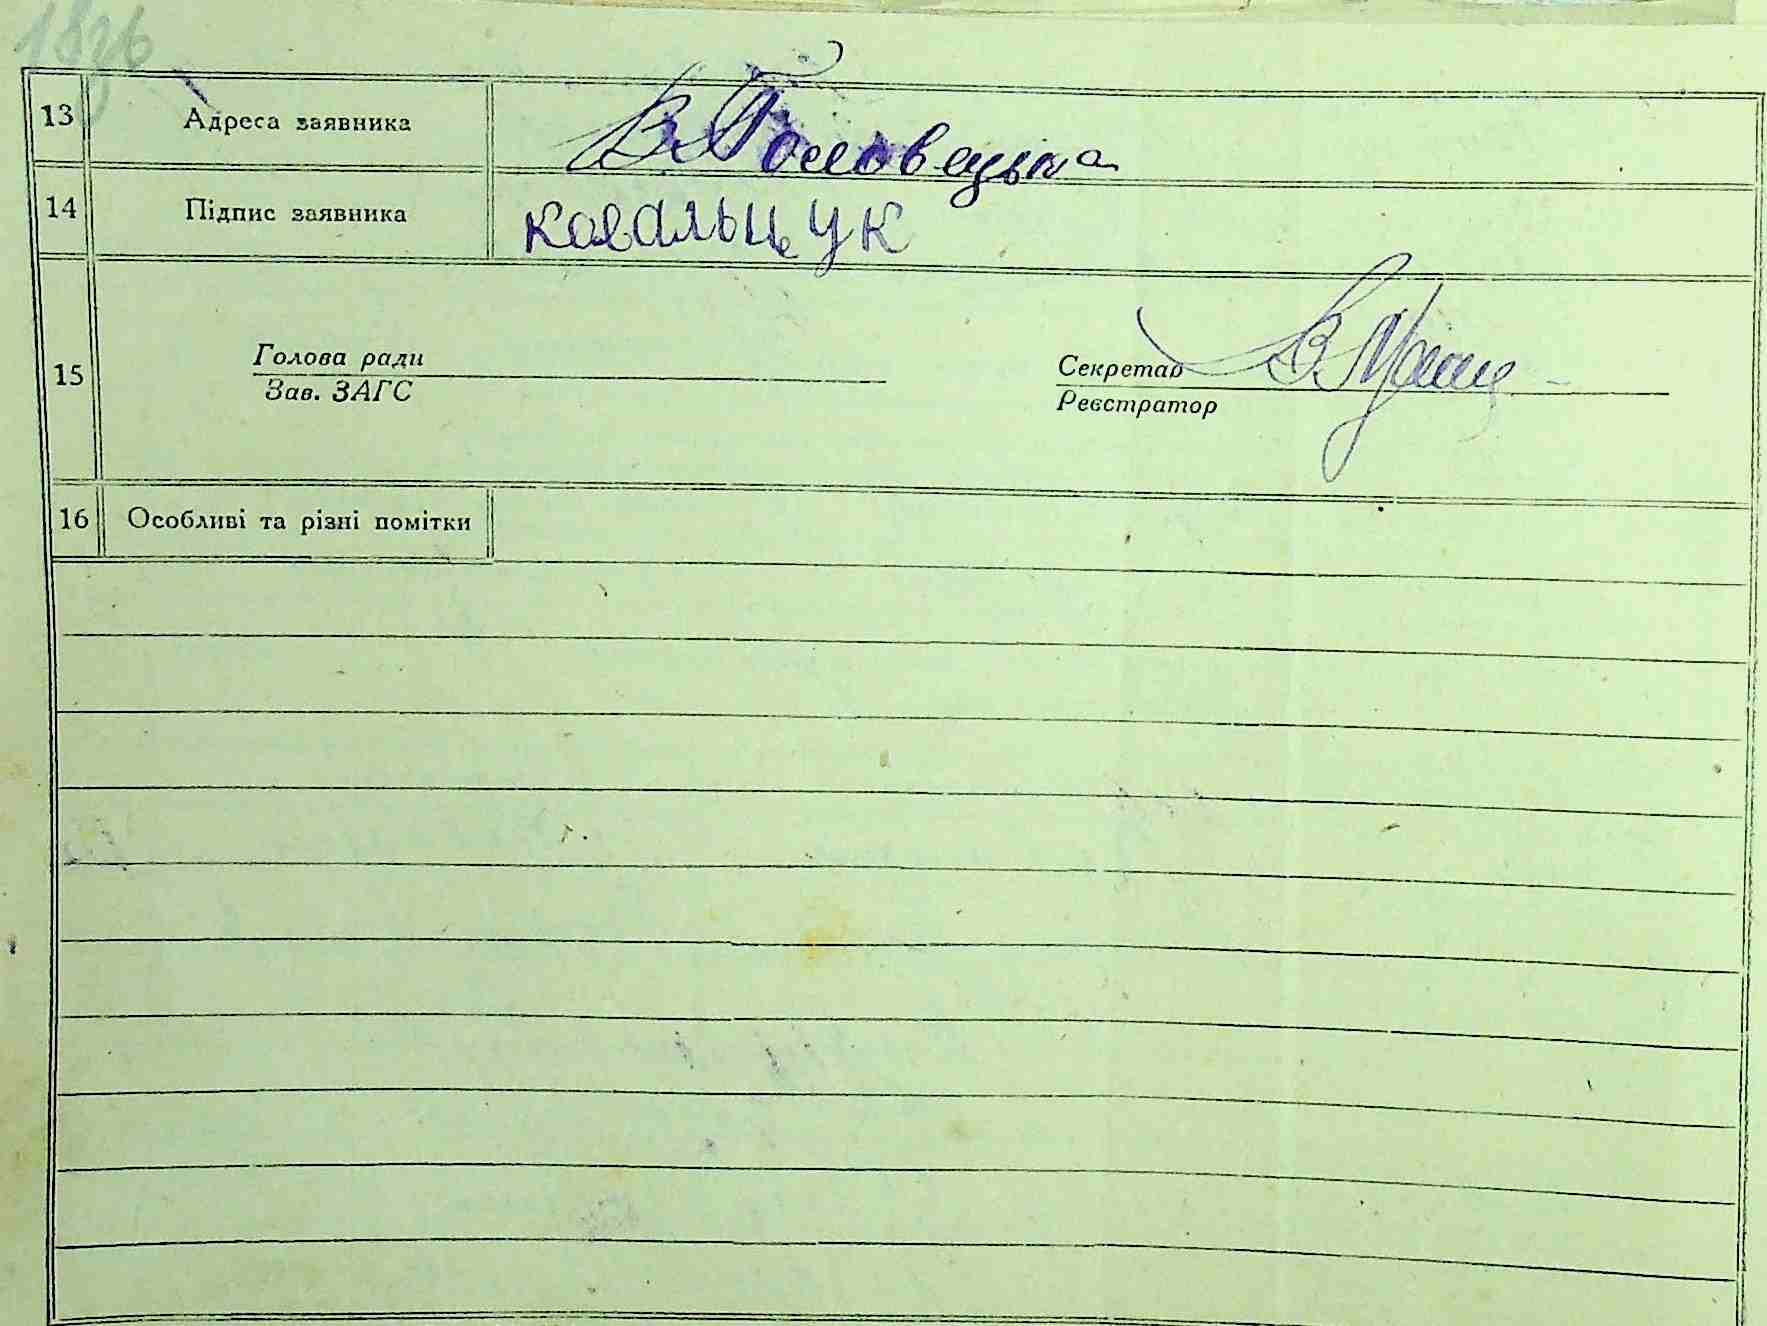 1826
13 Адреса заявника В. Головецька
14 Підпис заявника Ковальцук
15 Голова ради
Зав. ЗАГС
Секретар
Реєстратор
16 Особливі та різні помітки